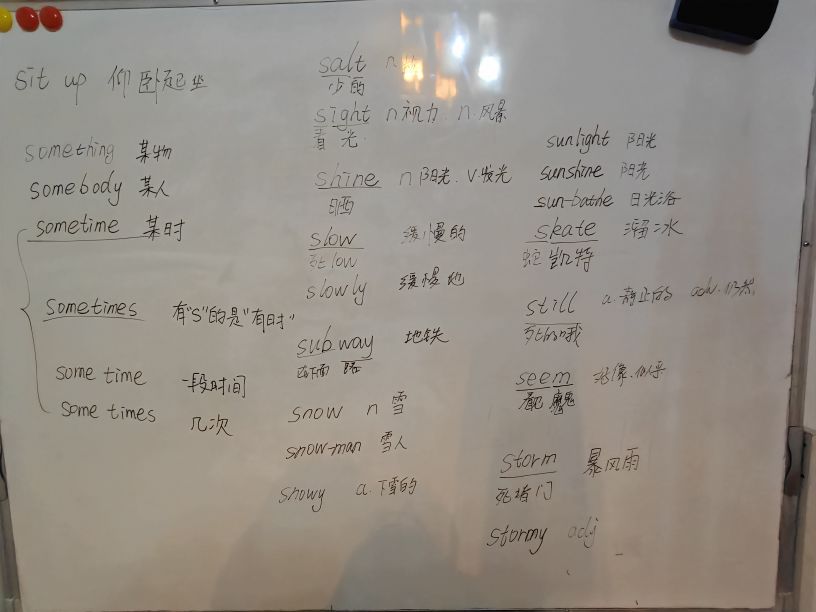 sit up 仰卧起坐
something 某物
somebody 某人
sometime 某时
sometimes 有"S"的是"有时"
some time 一段时间
some times 几次
salt n
少的
sight n视力. n.风景
看 光
shine n 阳光. V.
晒
slow 缓慢的
low
slowly 缓慢地
subway 地铁
下面 路
snow n 雪
snow-man 雪人
snowy a.下雪的
sunlight 阳光
sunshine 阳光
sun-bathe 日光浴
skate 溜冰
蛇 凯特
still a.静止的 adv.仍然
seem 好像.似乎
storm 暴风雨
死堵门
stormy adj